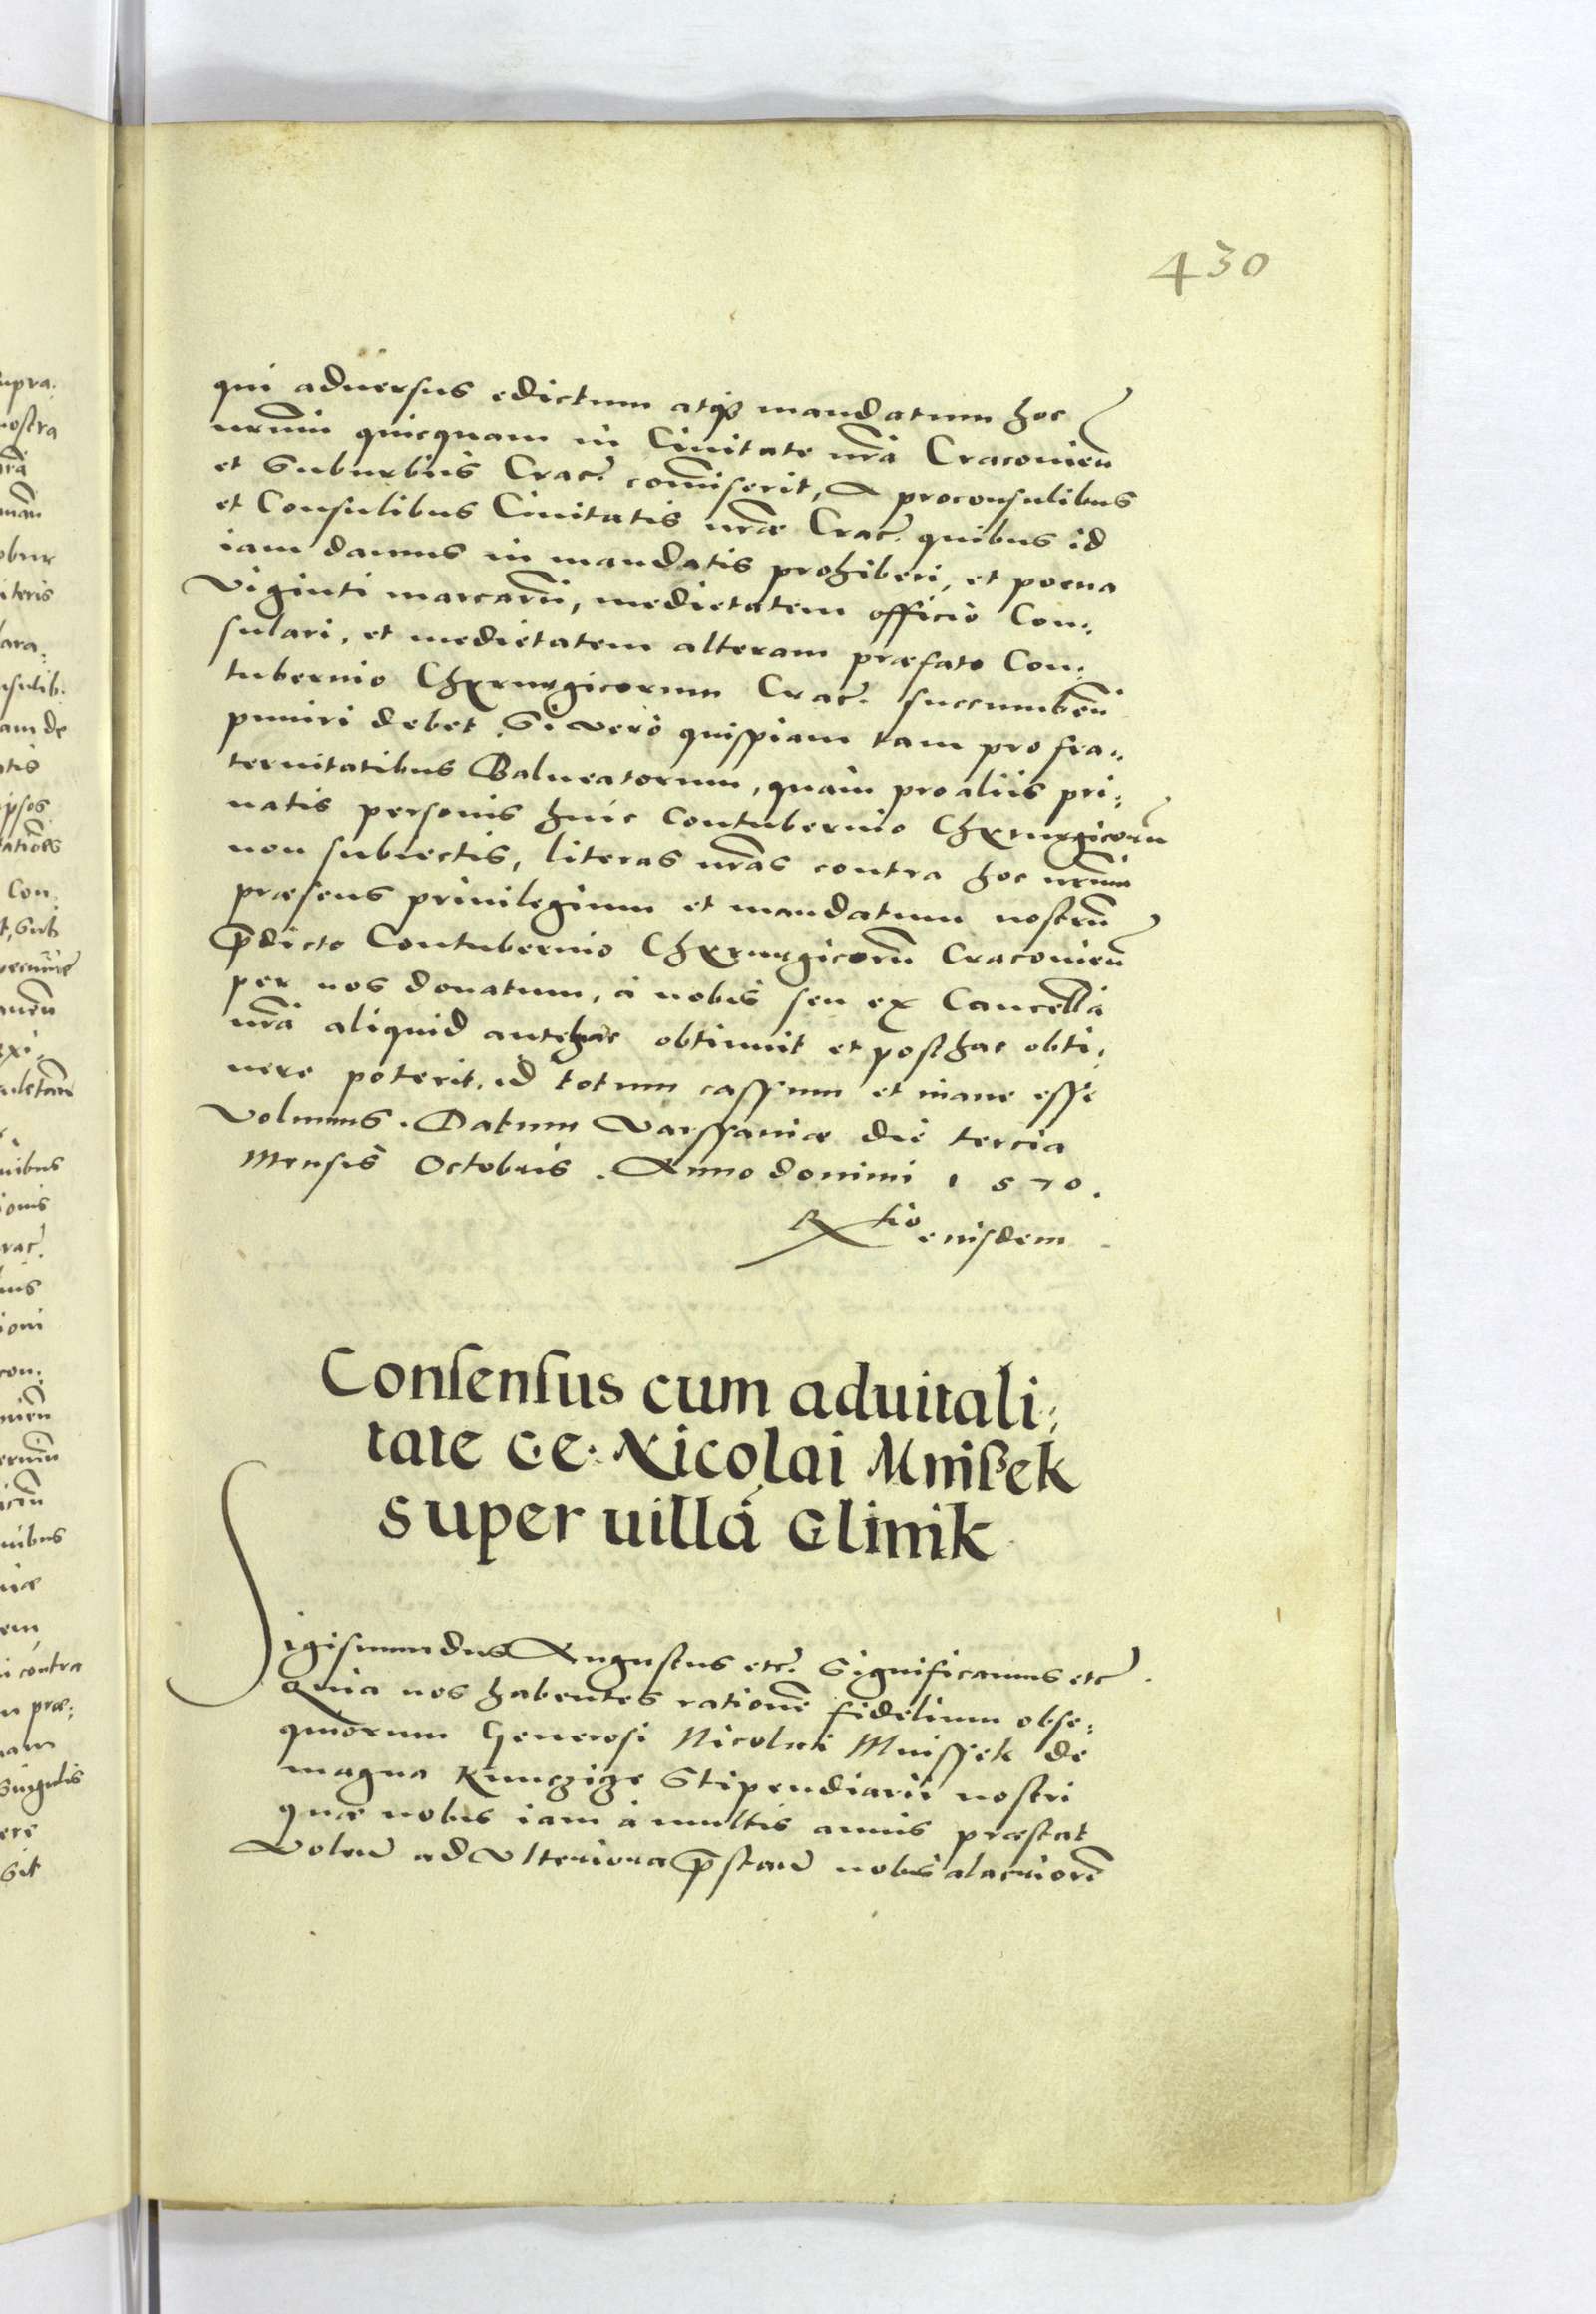 430
qui aduersus edictum atqʒ mandatum hoc
nr̃um quicquam in Ciuitate nrã Cracouieñ
et Suburbiis Crac̃. com̃iserit, A proconsulibus
et Consulibus Ciuitatis nr̃æ Crac̃. quibus id
iam damus in mandatis prohiberi, et poena
Viginti marcarũ, medietatem officio Con:
sulari, et medietatem alteram præfato Con:
tubernio Chyrurgicorum Crac̃. succumbeñ
puniri debet. Si vero quispiam tam pro fra:
ternitatibus Balneatorum, quàm pro aliis pri:
uatis personis huic Contubernio Chyrurgicorũ
non subiectis, literas nrãs contra hoc nr̃um
præsens priuilegium et mandatum nostrũ
p̃dicto Contubernio Chyrurgicorũ Cracouieñ
per nos donatum, à nobis seu ex Cancell̃a
nrã aliquid antehac obtinuit et posthac obti:
nere poterit, id totum cassum et inane esse
Volumus. Datum Varssauiæ die tercia
Mensis Octobris. Anno domini 1570.
Rtio eiusdem
Consensus cum aduitali:
tate G. e. Nicolai Mnißek
super uillã Glinik
Sigismundus Augustus etc̃. Significamus etc̃.
Quia nos habentes rationẽ fidelium obse:
quiorum Generosi Nicolai Mnissek de
magna Kunczicze Stipendiarii nostri
quæ nobis iam à multis annis præstat
Volen̄ ad Vlteriora p̃stan̄ nobis alacriorẽ
upra.
nostra
obur
iteris
ara.
nsulib.
am de
atis
ipsos
Con:
t, Sub
nibus
ionis
rac̃.
ioni
con:
nibus
em,
i contra
n præ:
nam
Singulis
ere
Sit